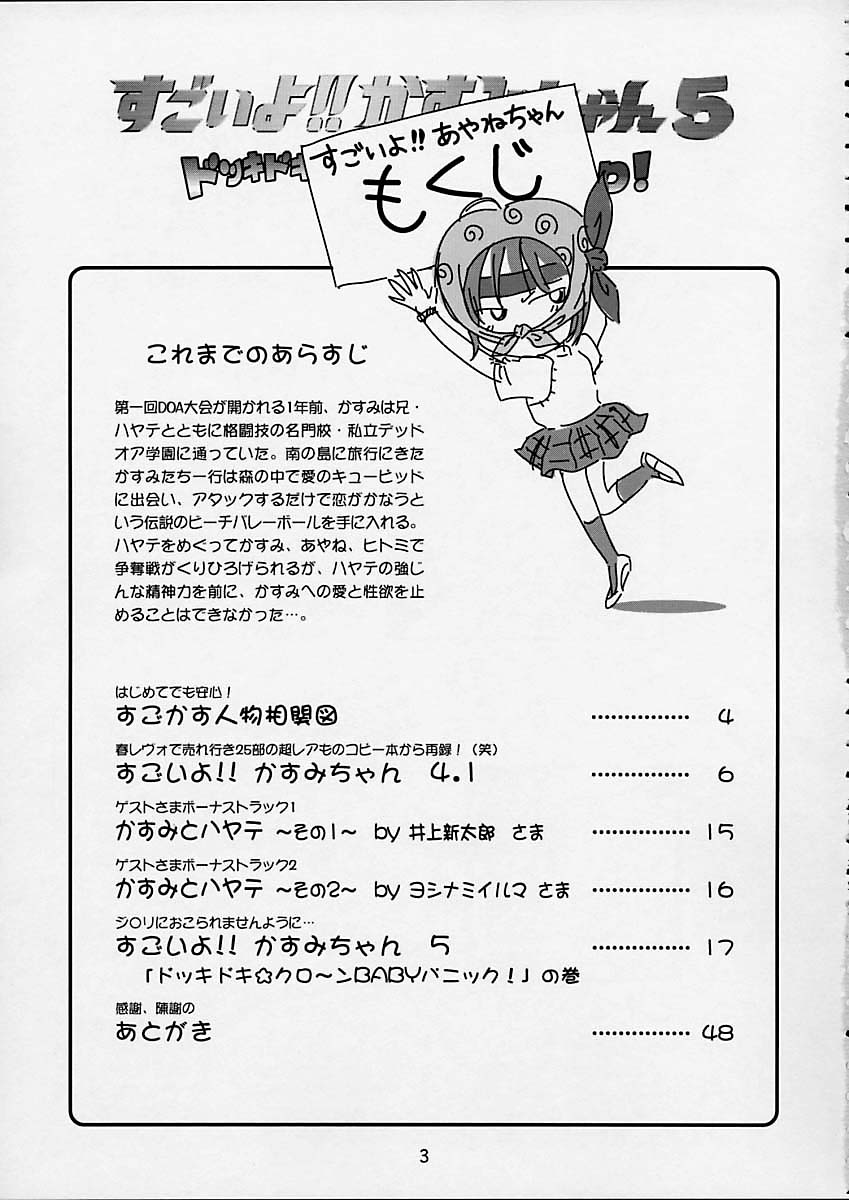 すごいよ!! かすみちゃん5
ドッキドキ
!
すごいよ!! あやねちゃん
もくじ
これまでのあらすじ
第一回DOA大会が開かれる1年前、かすみは兄・
ハヤテとともに格闘技の名門校・私立デッド
オア学園に通っていた。南の島に旅行にきた
かすみたち一行は森の中で愛のキューピッド
に出会い、アタックするだけで恋がかなうと
いう伝説のビーチバレーボールを手に入れる。
ハヤテをめぐってかすみ、あやね、ヒトミで
争奪戦がくりひろげられるが、ハヤテの強じ
んな精神力を前に、かすみへの愛と性欲を止
めることはできなかった…。
はじめてでも安心！
すごかす人物相関図 ················ 4
春レヴォで売れ行き25部の超レアものコピー本から再録！（笑）
すごいよ!! かすみちゃん 4.1 ················ 6
ゲストさまボーナストラック1
かすみとハヤテ ～その1～ by 井上新太郎 さま ················ 15
ゲストさまボーナストラック2
かすみとハヤテ ～その2～ by ヨシナミイルマ さま ················ 16
ジ○リにおこられませんように…
すごいよ!! かすみちゃん 5 ················ 17
「ドッキドキ☆クロ～ンBABYパニック！」の巻
感謝、陳謝の
あとがき ················ 48
3